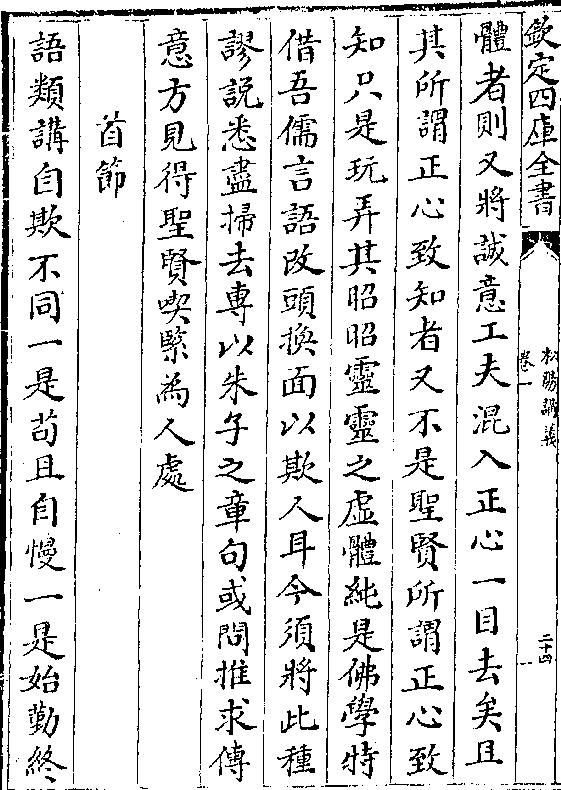 欽定四庫全書
松陽講義
卷一
二十四
體者則又將誠意工夫混入正心一目去矣且
其所謂正心致知者又不是聖賢所謂正心致
知只是玩弄其昭昭靈靈之虛體純是佛學特
借吾儒言語改頭換面以欺人耳今須將此種
謬說悉盡掃去專以朱子之章句或問推求傳
意方見得聖賢喫緊為人處
首節
語類講自欺不同一是苟且自慢一是始勤終